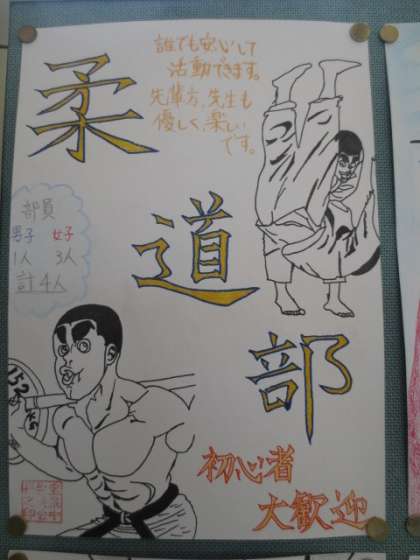 柔道部
誰でも安心して
活動できます。
先輩方、先生も
優しく、楽しい
です。
部員
男子 女子
1人 3人
計4人
初心者
大歓迎